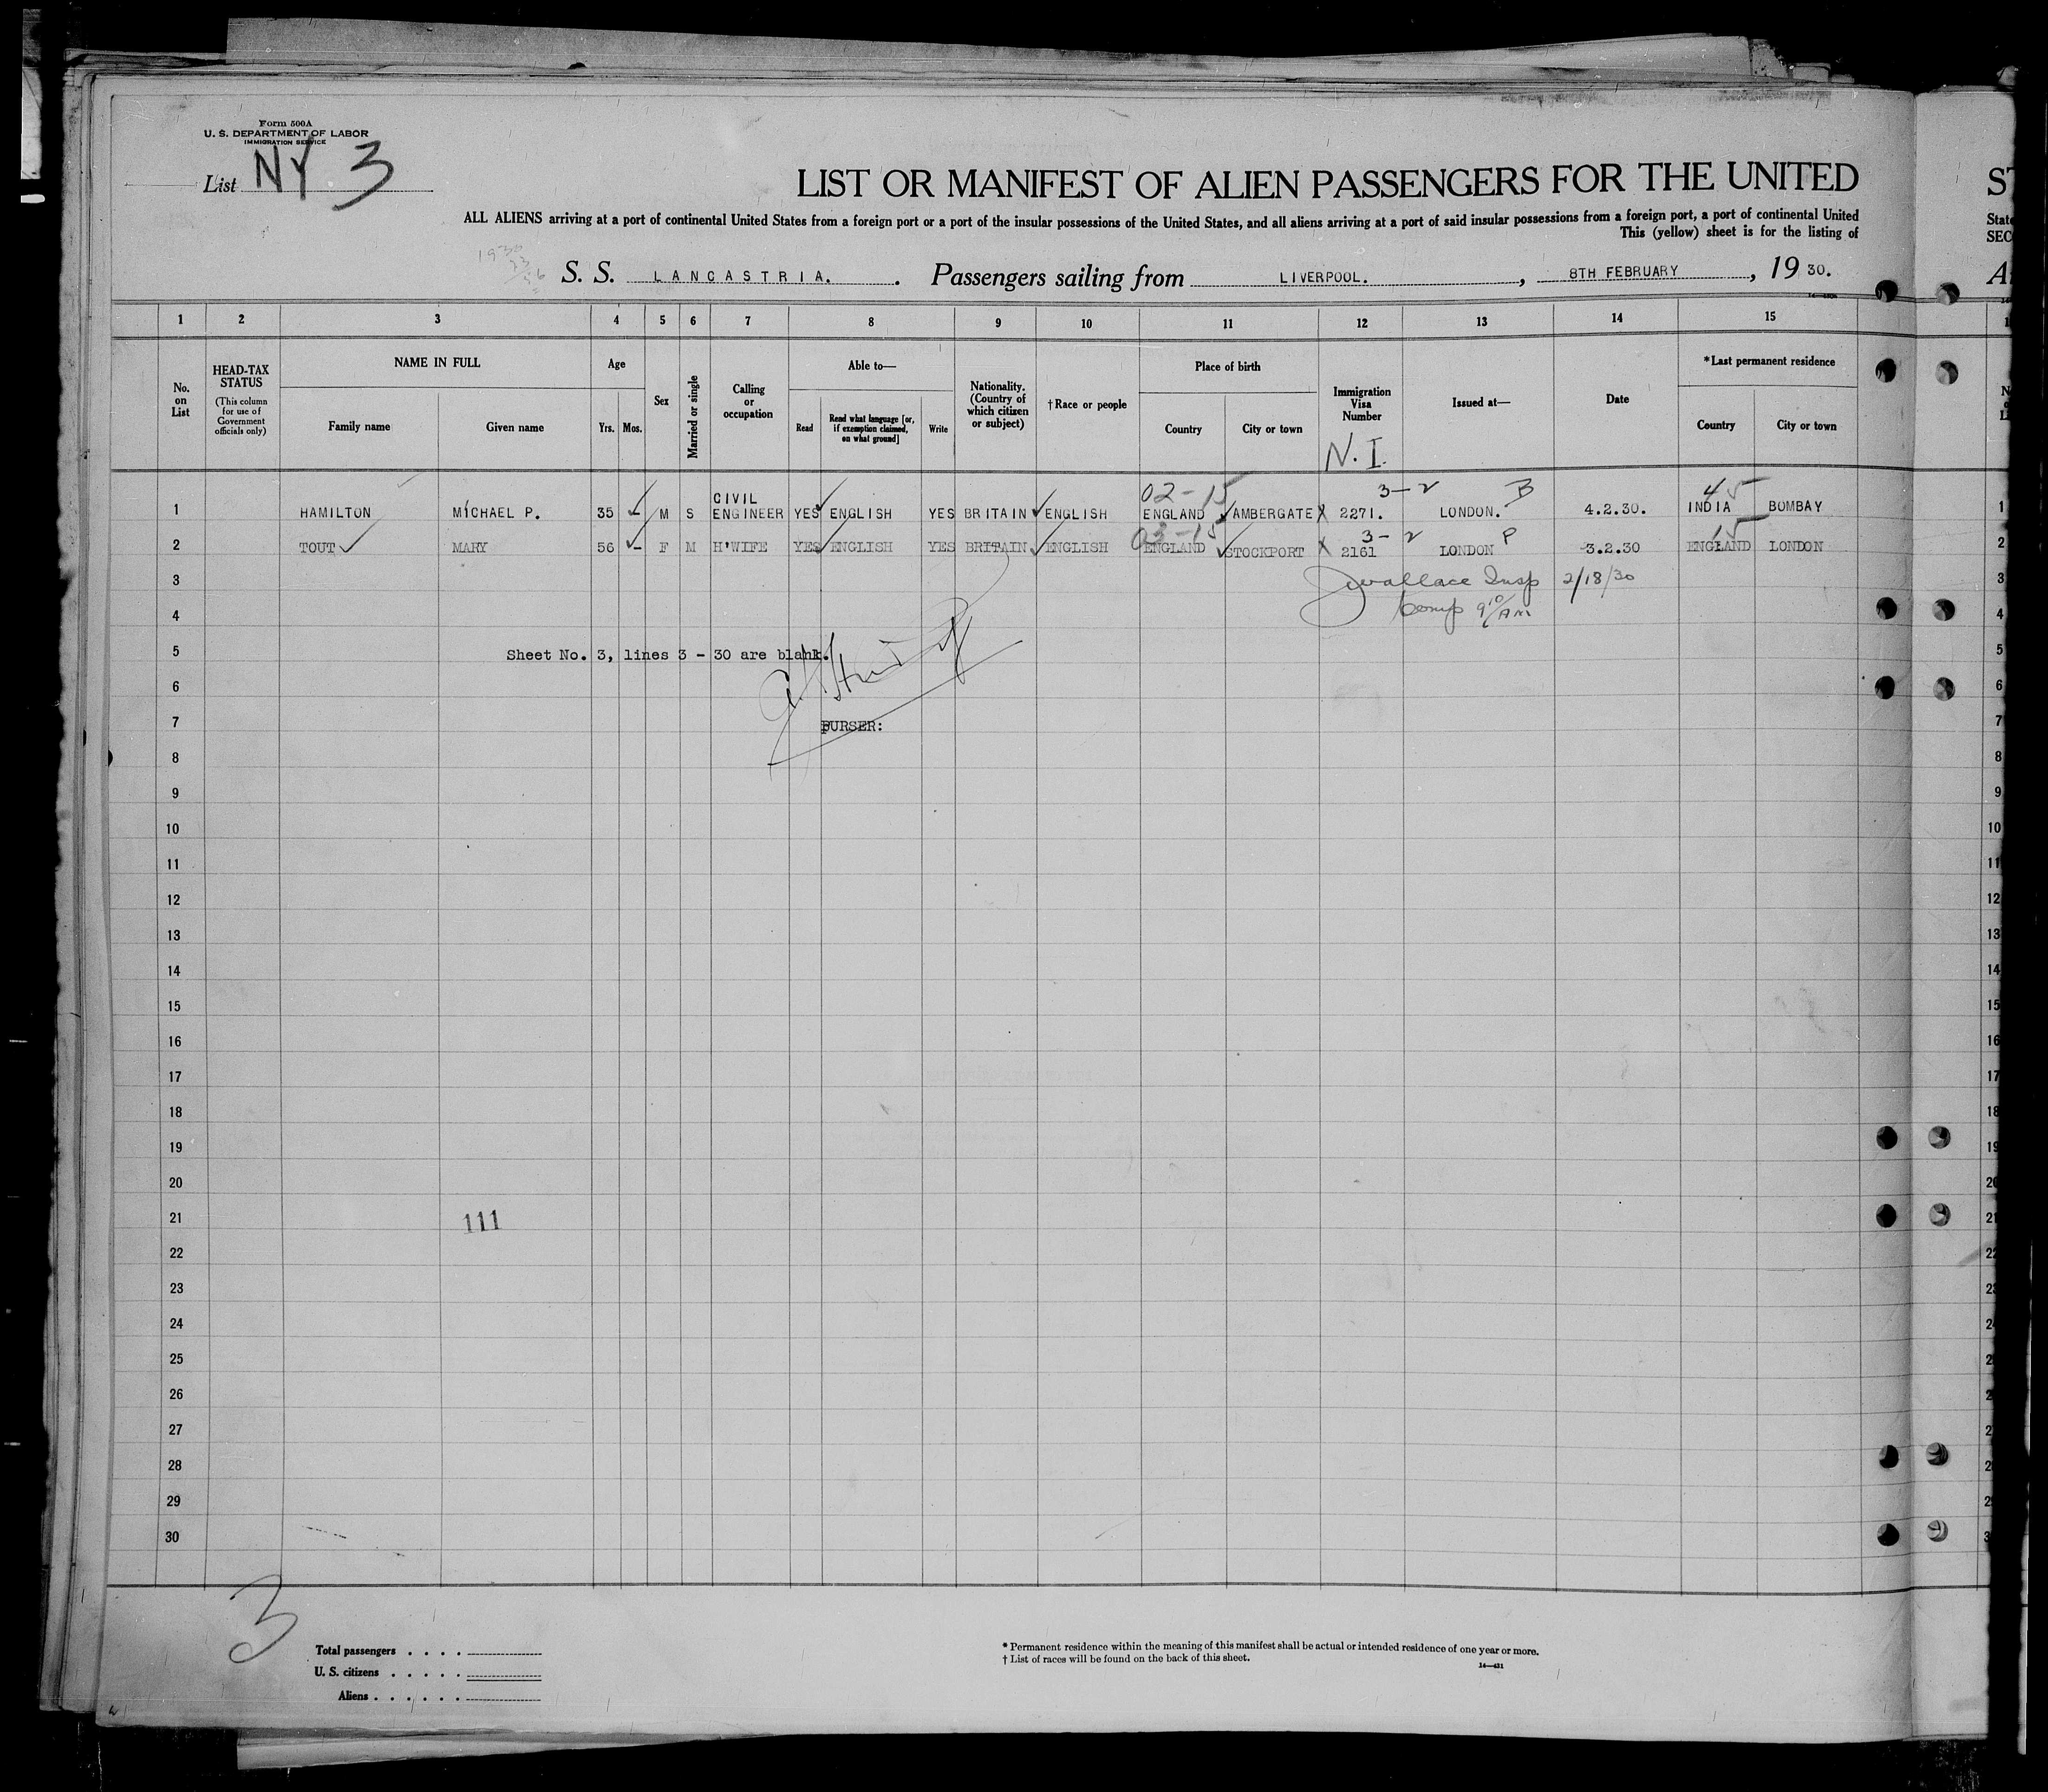 Form 500A
U. S. DEPARTMENT OF LABOR
IMMIGRATION SERVICE
List NY 3
LIST OR MANIFEST OF ALIEN PASSENGERS FOR THE UNITED
ALL ALIENS arriving at a port of continental United States from a foreign port or a port of the insular possessions of the United States, and all aliens arriving at a port of said insular possessions from a foreign port, a port of continental United
This (yellow) sheet is for the listing of
S. S. LANCASTRIA. . Passengers sailing from LIVERPOOL. , 8TH FEBRUARY , 19 30.
1 2 3 4 5 6 7 8 9 10 11 12 13 14 15
No. on List
HEAD-TAX STATUS (This column for use of Government officials only)
NAME IN FULL
Family name Given name
Age
Yrs. Mos.
Sex
Married or single
Calling or occupation
Able to—
Read Read what language [or, if exemption claimed, on what ground] Write
Nationality. (Country of which citizen or subject)
† Race or people
Place of birth
Country City or town
Immigration Visa Number
N. I.
Issued at—
Date
*Last permanent residence
Country City or town
02-15 3-2 B 45
1 HAMILTON MICHAEL P. 35 - M S CIVIL ENGINEER YES ENGLISH YES BRITAIN ENGLISH ENGLAND AMBERGATE X 2271. LONDON. 4.2.30. INDIA BOMBAY 1
03-15 3-2 P 15
2 TOUT MARY 56 - F M H'WIFE YES ENGLISH YES BRITAIN ENGLISH ENGLAND STOCKPORT X 2161 LONDON 3.2.30 ENGLAND LONDON 2
3 Wallace Insp 2/18/30 3
4 Comp 9 10/AM 4
5 Sheet No. 3, lines 3 - 30 are blank. 5
6 6
7 PURSER: 7
8 8
9 9
10 10
11 11
12 12
13 13
14 14
15 15
16 16
17 17
18 18
19 19
20 20
21 111 21
22 22
23 23
24 24
25 25
26
27
28
29
30
3
Total passengers . . . .
U. S. citizens . . . . .
Aliens . . . . . .
* Permanent residence within the meaning of this manifest shall be actual or intended residence of one year or more.
† List of races will be found on the back of this sheet.
14—431